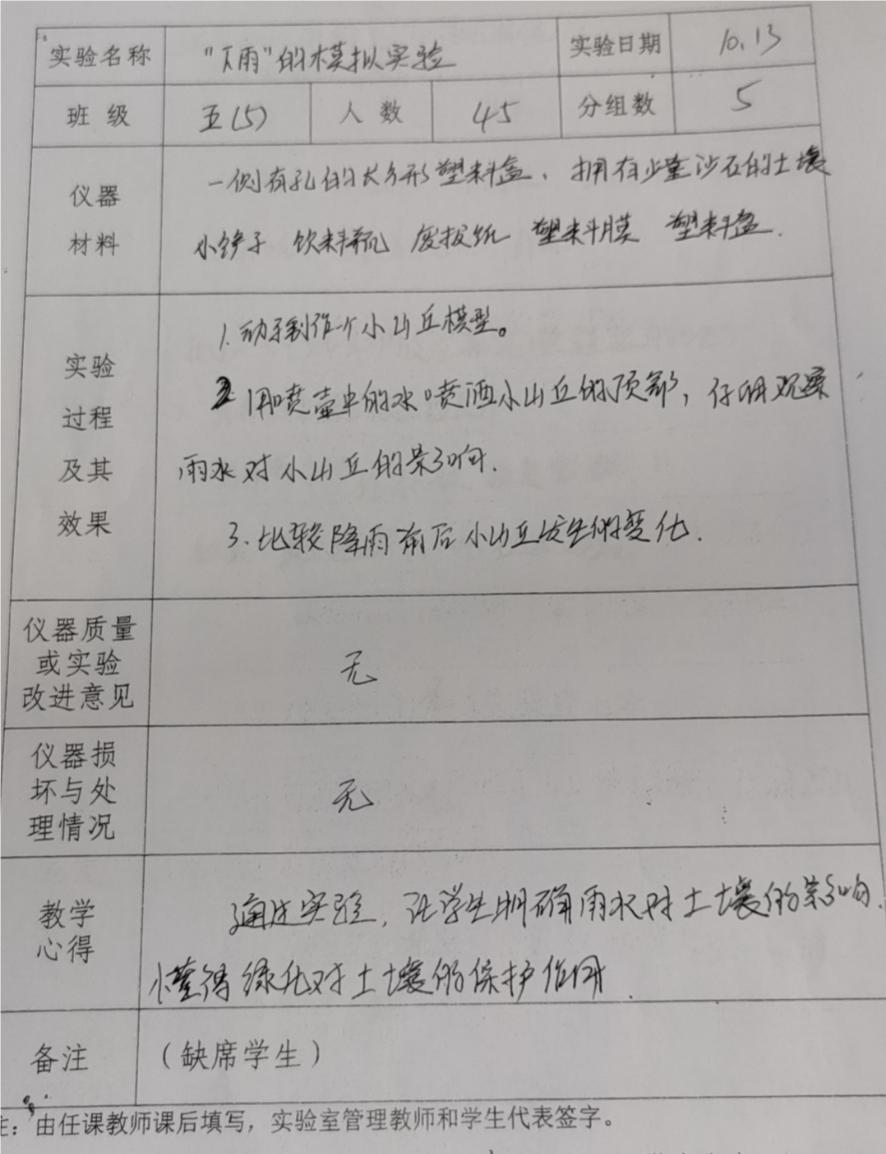 实验名称 "下雨"的模拟实验 实验日期 10.13
班级 五(5) 人数 45 分组数 5
仪器材料 一侧有孔的长方形塑料盒、拥有少量沙石的土壤
小铲子 饮料瓶 废报纸 塑料膜 塑料盒.
实验过程及其效果 1.动手制作一个小山丘模型。
2 用喷壶中的水喷洒小山丘的顶部,仔细观察
雨水对小山丘的影响.
3.比较降雨前后小山丘发生的变化.
仪器质量或实验改进意见 无
仪器损坏与处理情况 无
教学心得 通过实验,让学生明确雨水对土壤的影响.
懂得绿化对土壤的保护作用.
备注 (缺席学生)
注:由任课教师课后填写,实验室管理教师和学生代表签字。